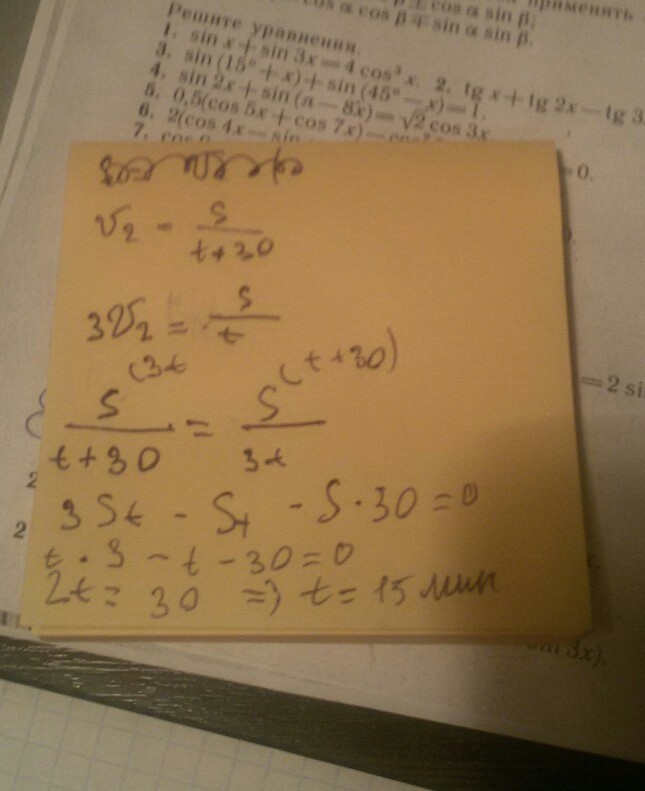 cos α cos β ∓ sin α sin β.
Решите уравнения.
1. sin x + sin 3x = 4 cos³ x. 2. tg x + tg 2x − tg 3
3. sin (15° + x) + sin (45° − x) = 1.
4. sin 2x + sin (π − 8x) = √2 cos 3x
5. 0,5(cos 5x + cos 7x) −
6. 2(cos 4x − sin
7.
= 0.
v₂ = S/(t+30)
3v₂ = S/t
(3t (t+30)
S/(t+30) = S/3t
= 2 si
2
3St − St − S·30 = 0
2
t·3 − t − 30 = 0
2t = 30 => t = 15 мин
3x).